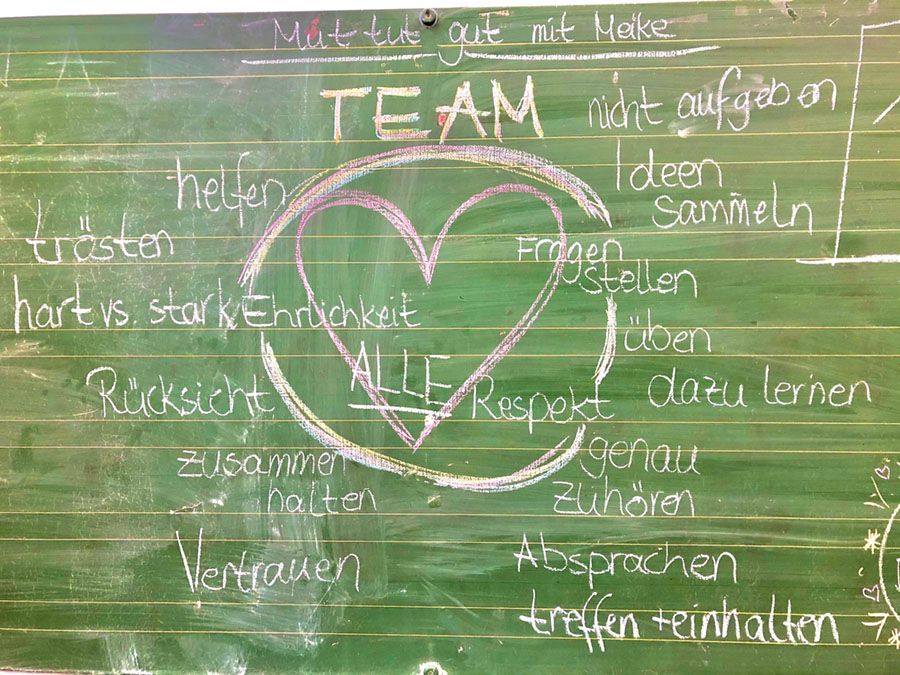 Mut tut gut mit Meike
TEAM
nicht aufgeben
helfen
Ideen
sammeln
trösten
Fragen
stellen
hart vs. stark
Ehrlichkeit
üben
ALLE
Rücksicht
Respekt
dazu lernen
zusammen
halten
genau
zuhören
Vertrauen
Absprachen
treffen + einhalten